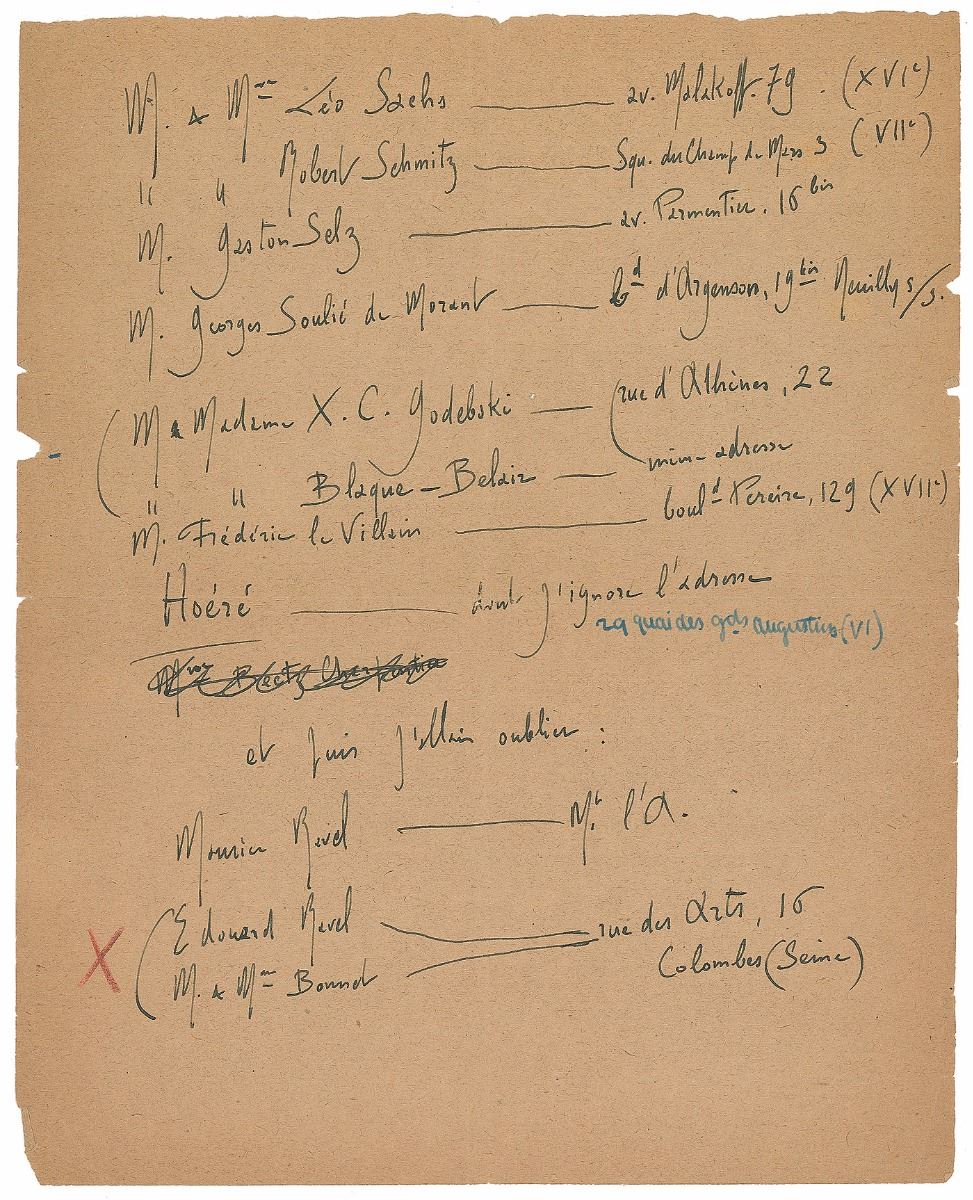 M. & Mme Léo Sachs — av. Malakoff. 79. (XVIe)
" " Robert Schmitz — Squ. du Champ de Mars 3 (VIIe)
M. Gaston Selz — av. Parmentier. 16 bis
M. Georges Soulié de Morant — bd d'Argenson, 19 bis Neuilly s/S.
M & Madame X. C. Godebski — rue d'Athènes, 22
" " Blaque-Belair — même adresse
M. Frédéric le Villain — bould Pereire, 129 (XVIIe)
Hoéré — dont j'ignore l'adresse
29 quai des gds augustins (VI)
et puis j'allais oublier :
Maurice Ravel — Mt l'A.
Edouard Ravel — rue des Arts, 16
M. & Mme Bonnet Colombes (Seine)
X